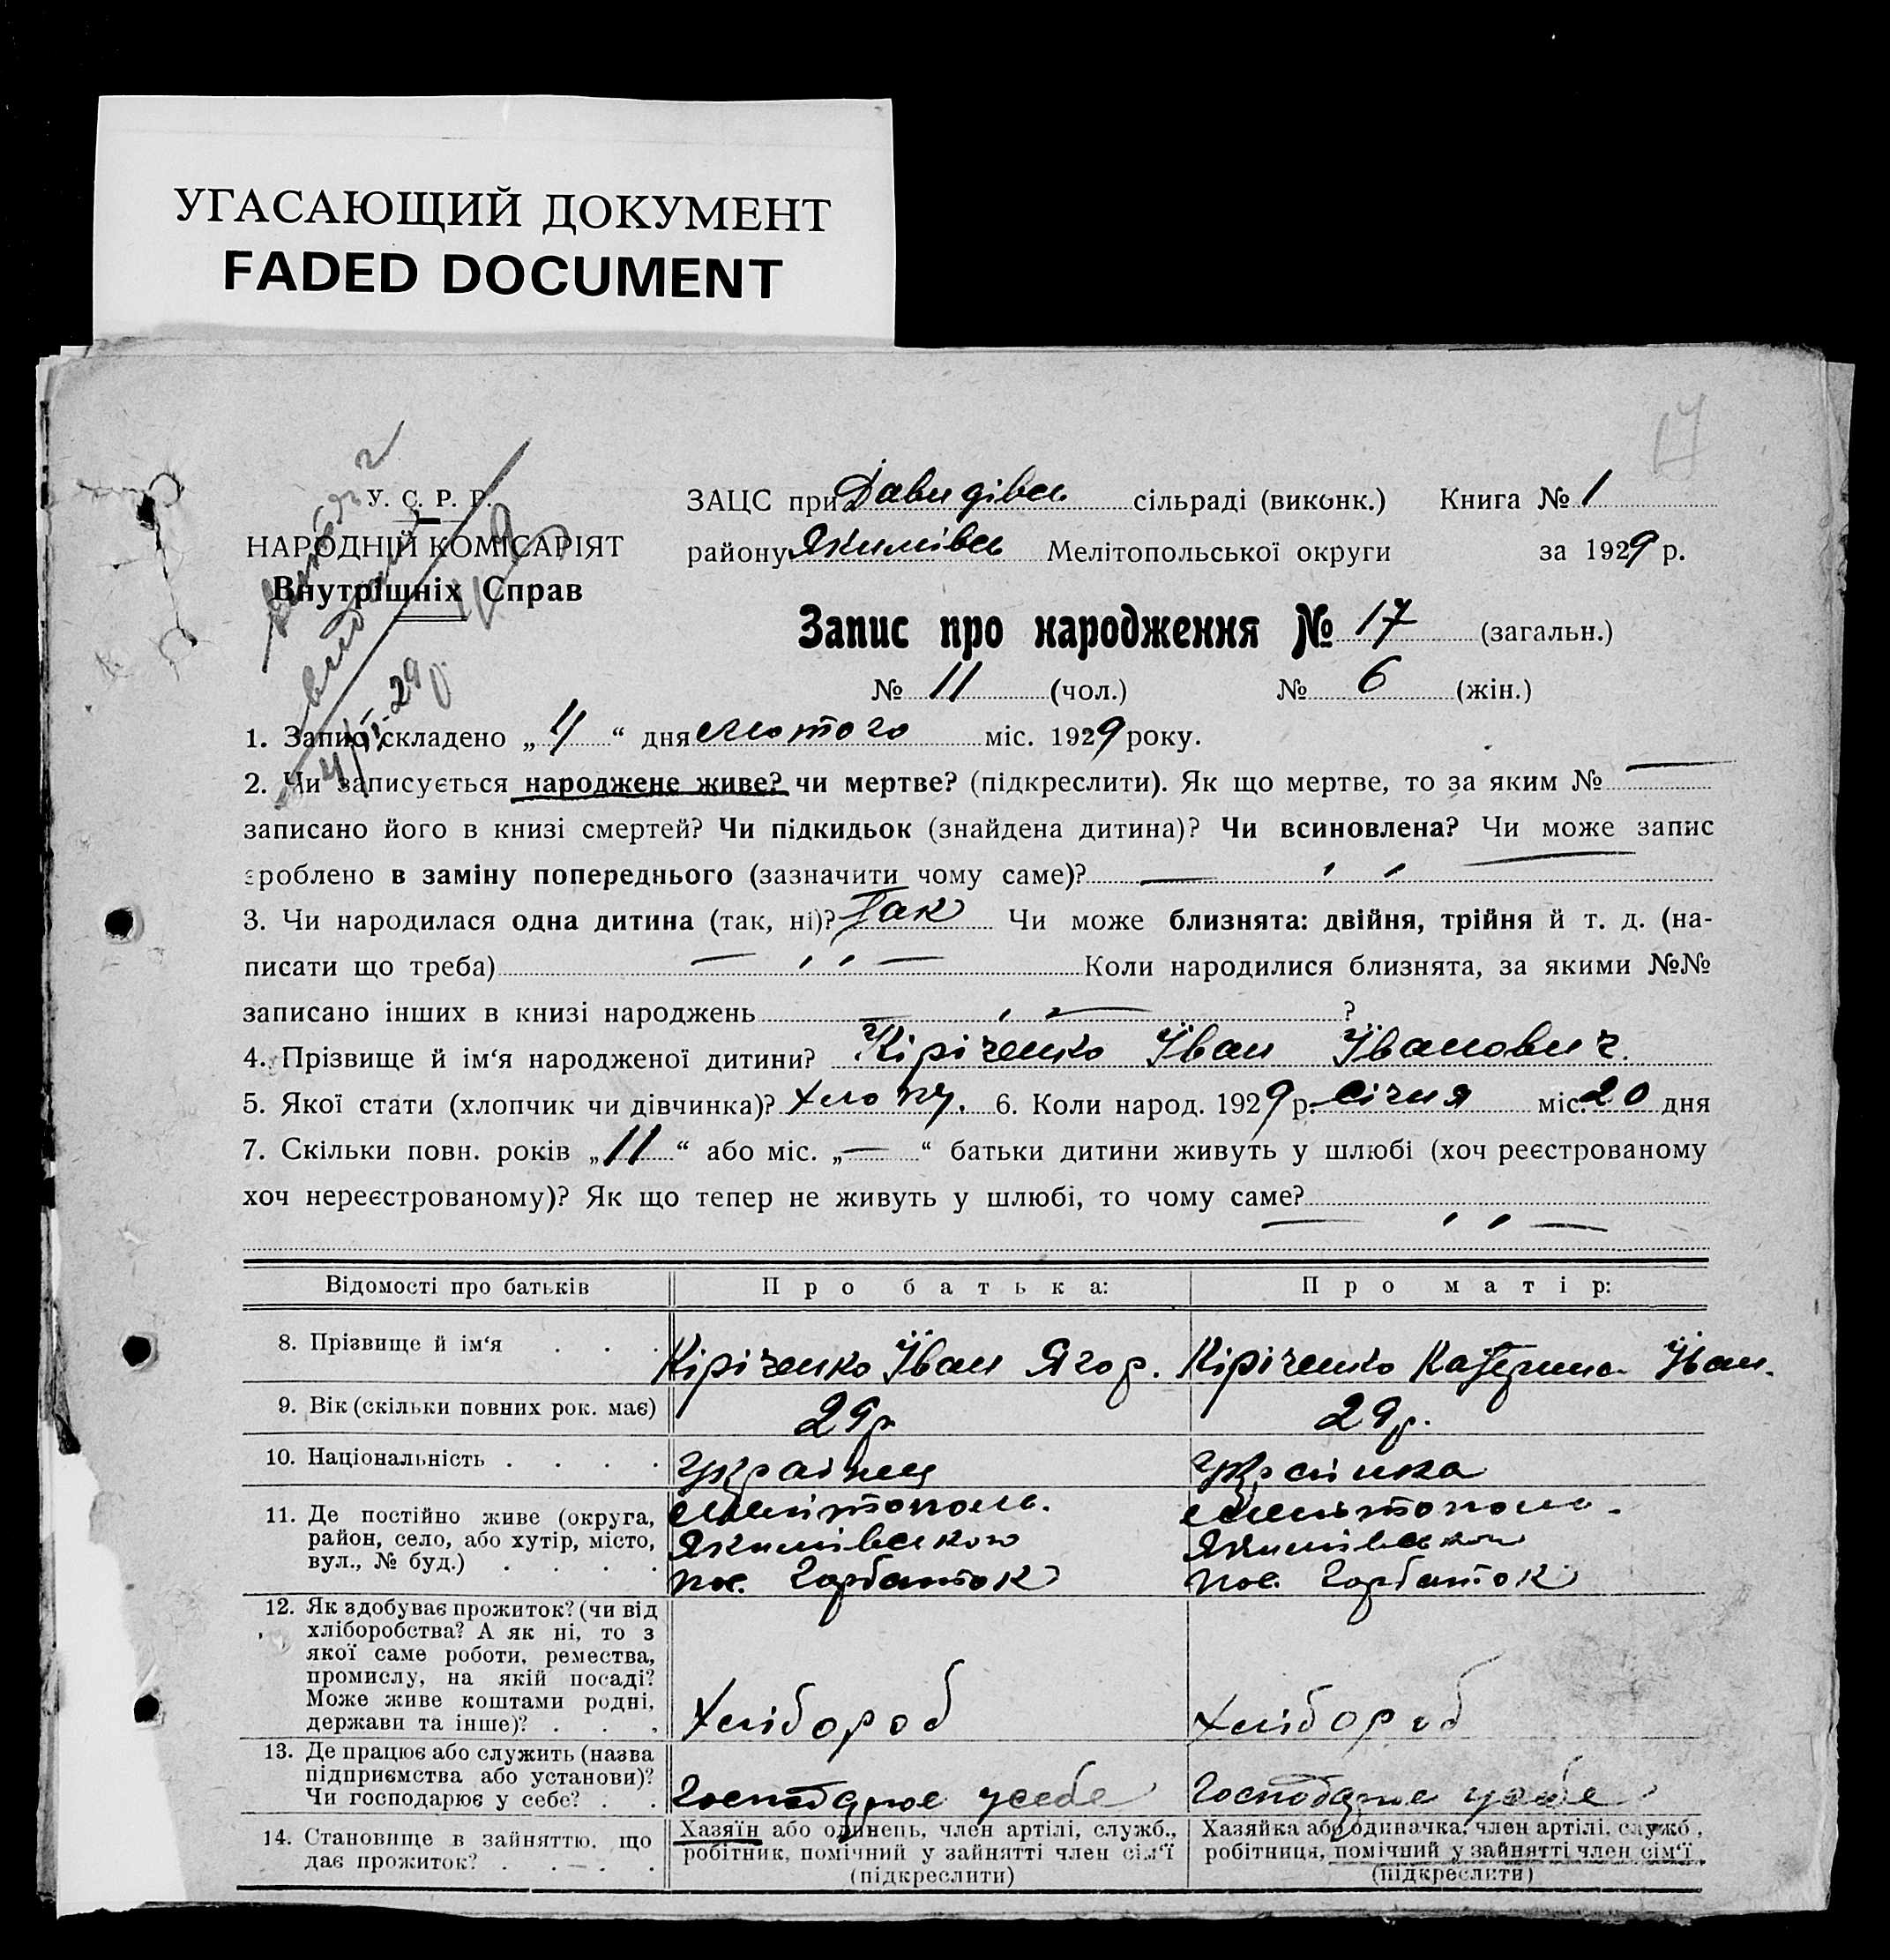 УГАСАЮЩИЙ ДОКУМЕНТ
FADED DOCUMENT
17
У. С. Р. Р.
НАРОДНІЙ КОМІСАРІЯТ
Внутрішніх Справ
ЗАЦС при Давидівск сільраді (виконк.) Книга № 1
району Якимівск Мелітопольської округи за 1929 р.
Запис про народження № 17 (загальн.)
№ 11 (чол.) № 6 (жін.)
1. Запис складено „ 4 “ дня лютого міс. 1929 року.
2. Чи записується народжене живе? чи мертве? (підкреслити). Як що мертве, то за яким № —
записано його в книзі смертей? Чи підкидьок (знайдена дитина)? Чи всиновлена? Чи може запис
зроблено в заміну попереднього (зазначити чому саме)? — ‚ ‚ —
3. Чи народилася одна дитина (так, ні)? Так Чи може близнята: двійня, трійня й т. д. (на-
писати що треба) — ‚ ‚ — Коли народилися близнята, за якими №№
записано інших в книзі народжень — ‚ — ?
4. Прізвище й ім‘я народженої дитини? Кіріченко Їван Їванович.
5. Якої стати (хлопчик чи дівчинка)? хлопч. 6. Коли народ. 1929 р. січня міс. 20 дня
7. Скільки повн. років „ 11 “ або міс. „ — “ батьки дитини живуть у шлюбі (хоч реєстрованому
хоч нереєстрованому)? Як що тепер не живуть у шлюбі, то чому саме?
— ‚ ‚ —
Відомості про батьків Про батька: Про матір:
8. Прізвище й ім‘я . . . Кіріченко Їван Ягор. Кіріченко Катерина Їван.
9. Вік (скільки повних рок. має) 29р 29р.
10. Національність . . . . українец українка
11. Де постійно живе (округа, Мелітополь. Мелітополь.
район, село, або хутір, місто, Якимівською Якимівською
вул., № буд.) . . . . пос. Горбаток пос. Горбаток
12. Як здобуває прожиток? (чи від
хліборобства? А як ні, то з
якої саме роботи, ремества,
промислу, на якій посаді?
Може живе коштами родні,
держави та інше)? . . . Хлібороб Хлібороб
13. Де працює або служить (назва
підприємства або установи)?
Чи господарює у себе? . . Господарює усебе Господарює усебе
14. Становище в зайняттю, що Хазяїн або одинець, член артілі, служб., Хазяйка або одиначка, член артілі, служб.,
дає прожиток? . . . . робітник, помічний у зайнятті член сім‘ї робітниця, помічний у зайнятті член сім‘ї
(підкреслити) (підкреслити)